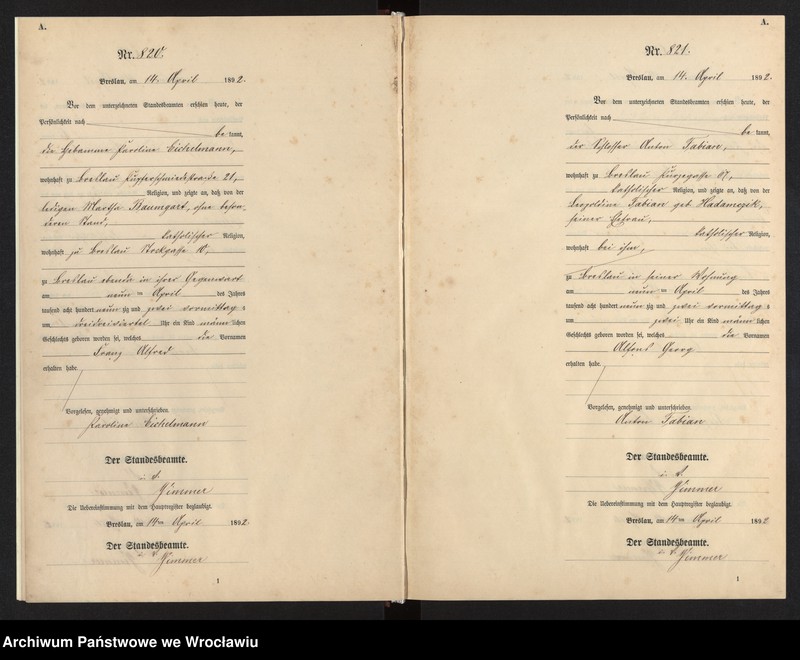 A.
Nr. 820.
Breslau, am 14. April 1892.
Vor dem unterzeichneten Standesbeamten erschien heute, der
Persönlichkeit nach
be kannt,
die Hebamme Karoline Eichelmann,
wohnhaft zu Breslau Kupferschmiedestraße 21,
Religion, und zeigte an, daß von der
ledigen Martha Baumgart, ohne beson-
deren Stand,
katholischer Religion,
wohnhaft zu Breslau Stockgasse 10,
zu Breslau ebenda in ihrer Gegenwart
am neun ten April des Jahres
tausend acht hundert neun zig und zwei vormittag s
um dreidreiviertel Uhr ein Kind männ lichen
Geschlechts geboren worden sei, welches die Vornamen
Franz Alfred
erhalten habe.
Vorgelesen, genehmigt und unterschrieben.
Karoline Eichelmann
Der Standesbeamte.
Zimmer
Die Uebereinstimmung mit dem Hauptregister beglaubigt.
Breslau, am 14ten April 1892.
Der Standesbeamte.
Zimmer
1
A.
Nr. 821.
Breslau, am 14. April 1892.
Vor dem unterzeichneten Standesbeamten erschien heute, der
Persönlichkeit nach
be kannt,
der Schlosser Anton Fabian,
wohnhaft zu Breslau Kurzegasse
katholischer Religion, und zeigte an, daß von der
Leopoldine Fabian geb Hadamczik,
seiner Ehefrau,
katholischer Religion,
wohnhaft bei ihm,
zu Breslau in seiner Wohnung
am neun ten April des Jahres
tausend acht hundert neun zig und zwei vormittag s
um zwei Uhr ein Kind männ lichen
Geschlechts geboren worden sei, welches die Vornamen
Alfons Georg
erhalten habe.
Vorgelesen, genehmigt und unterschrieben.
Anton Fabian
Der Standesbeamte.
Zimmer
Die Uebereinstimmung mit dem Hauptregister beglaubigt.
Breslau, am 14ten April 1892
Der Standesbeamte.
Zimmer
1
Archiwum Państwowe we Wrocławiu